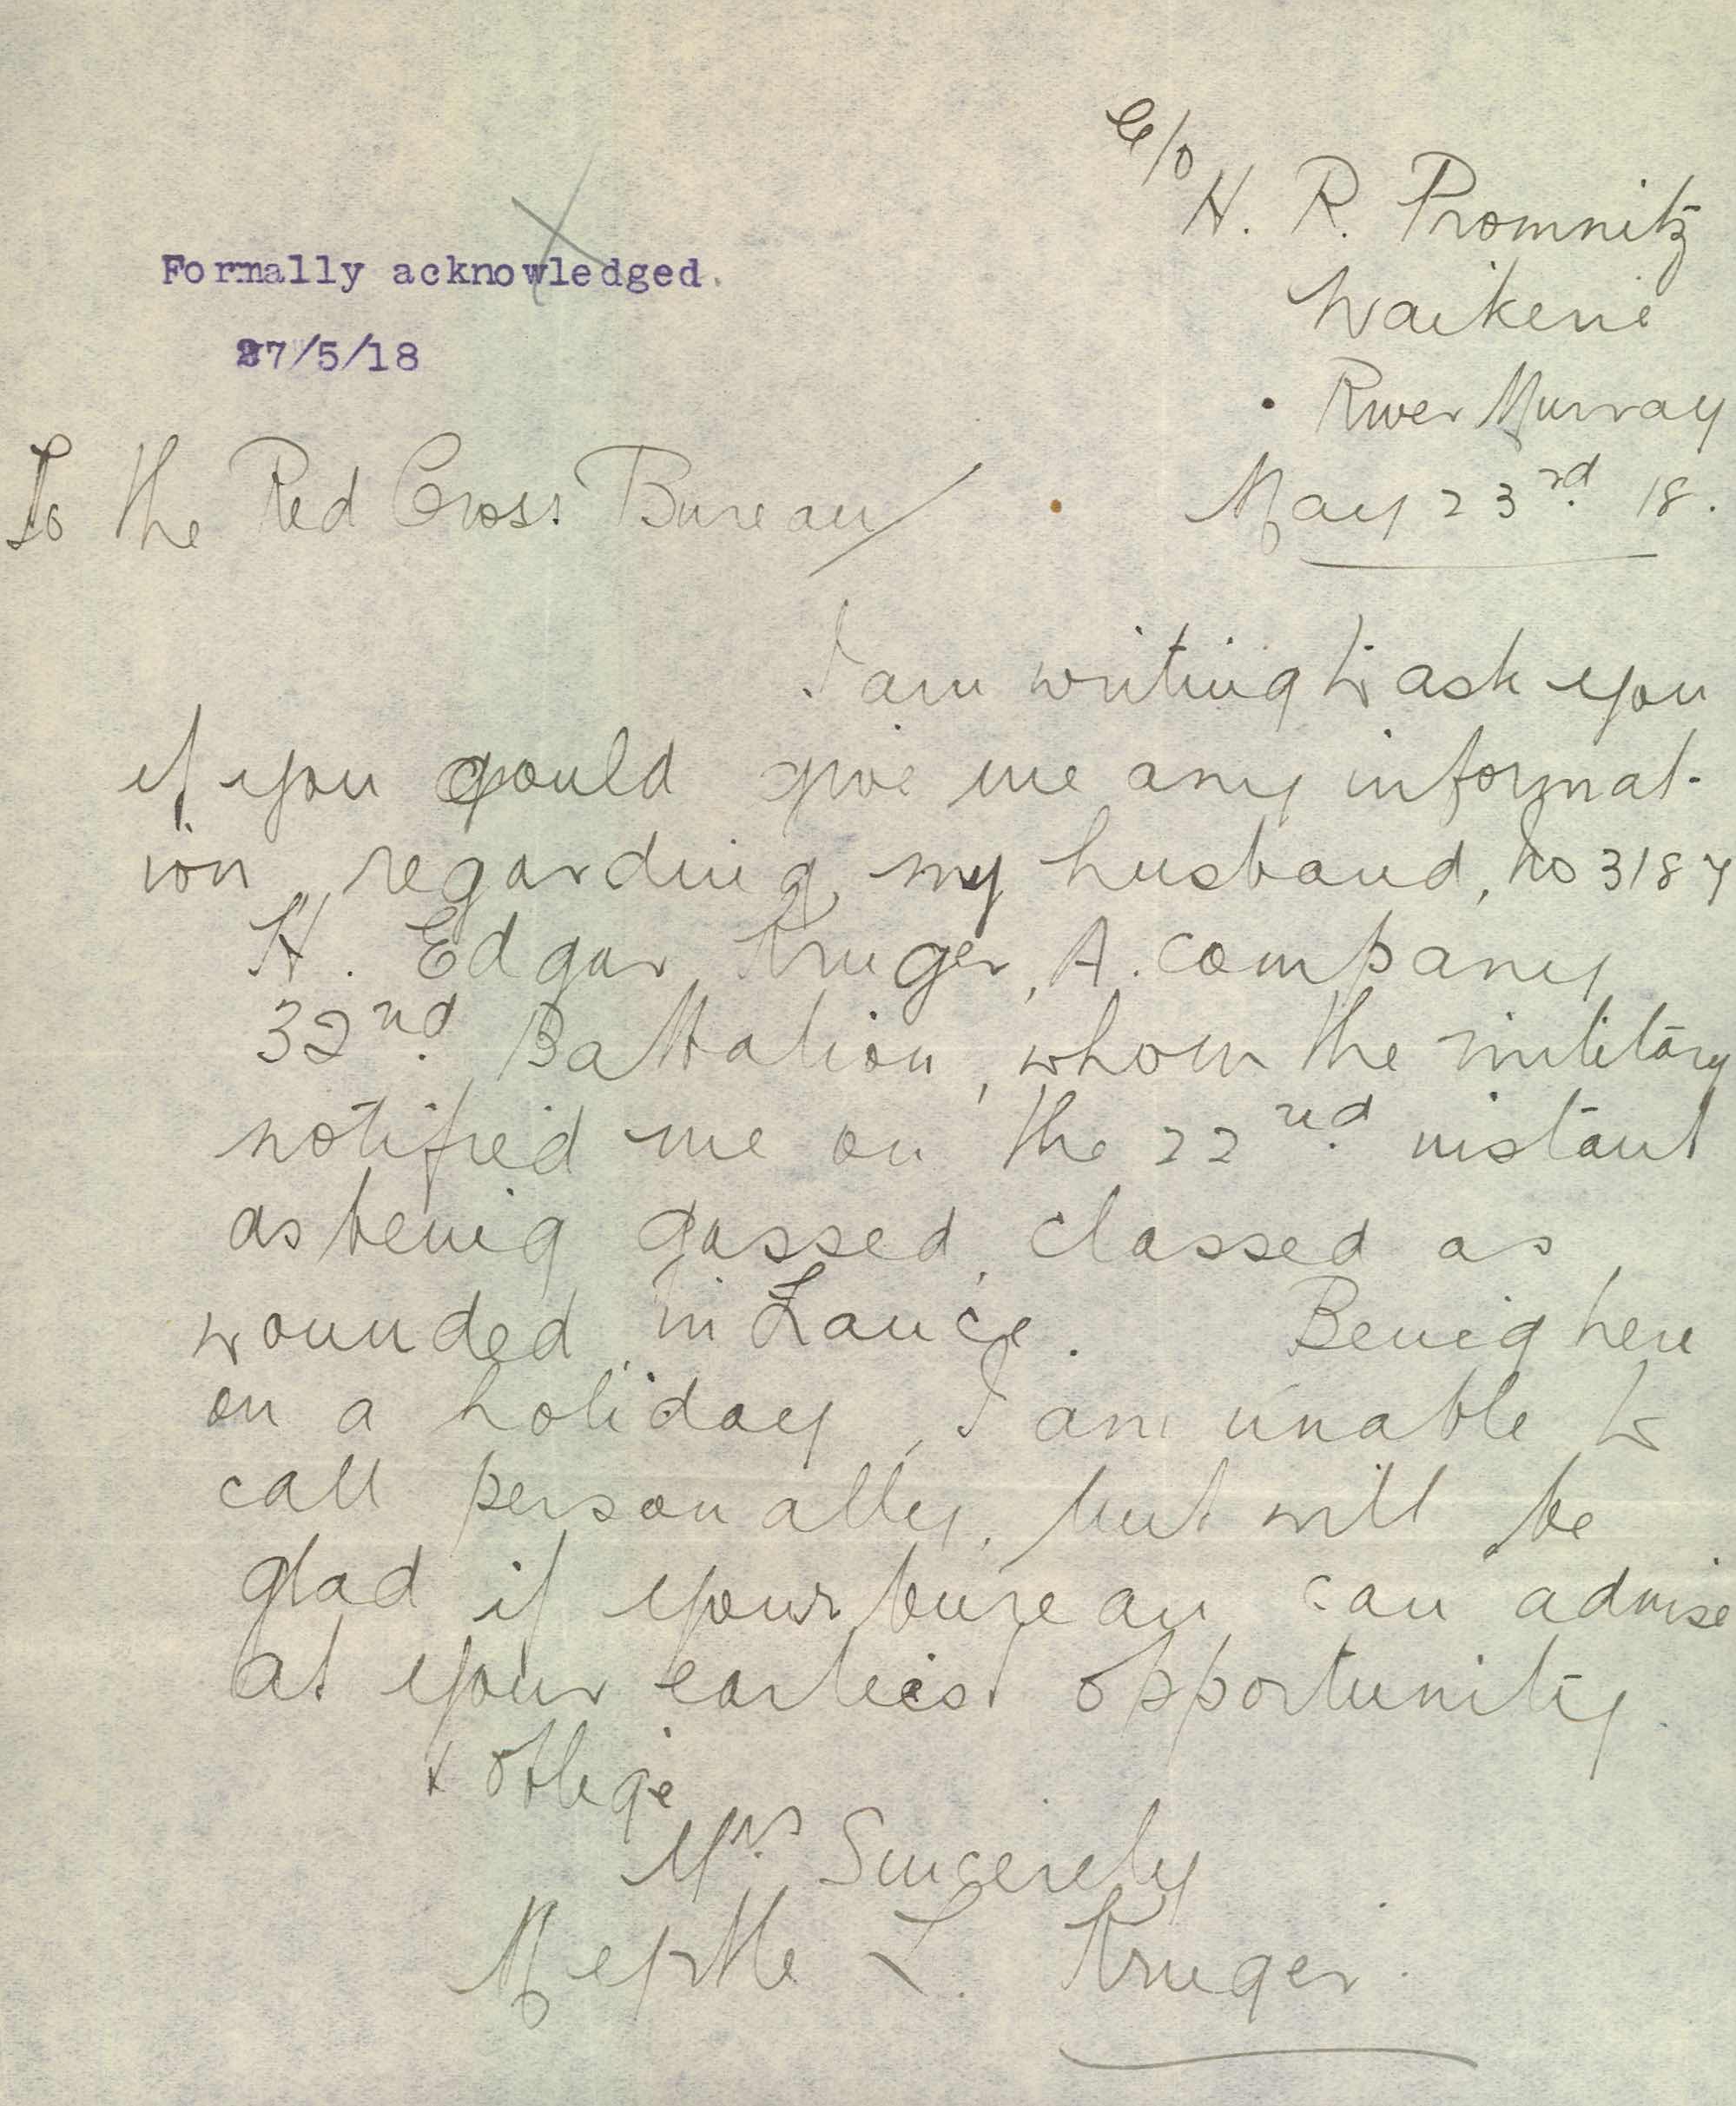 C/o
H. R. Promnitz
Waikerie
River Murray
Formally acknowledged.
27/5/18
May 23rd 18.
To the Red Cross Bureau/
I am writing to ask you
if you could give me any informat-
ion regarding my husband, No 3187
H. Edgar Kruger, A. Company
32nd Battalion, whom the military
notified me on the 22nd instant
as being gassed, classed as
wounded, in France. Being here
on a holiday, I am unable to
call personally, but will be
glad if your bureau can advise
at your earliest opportunity
& oblige
Yrs. Sincerely
Myrtle L. Kruger.